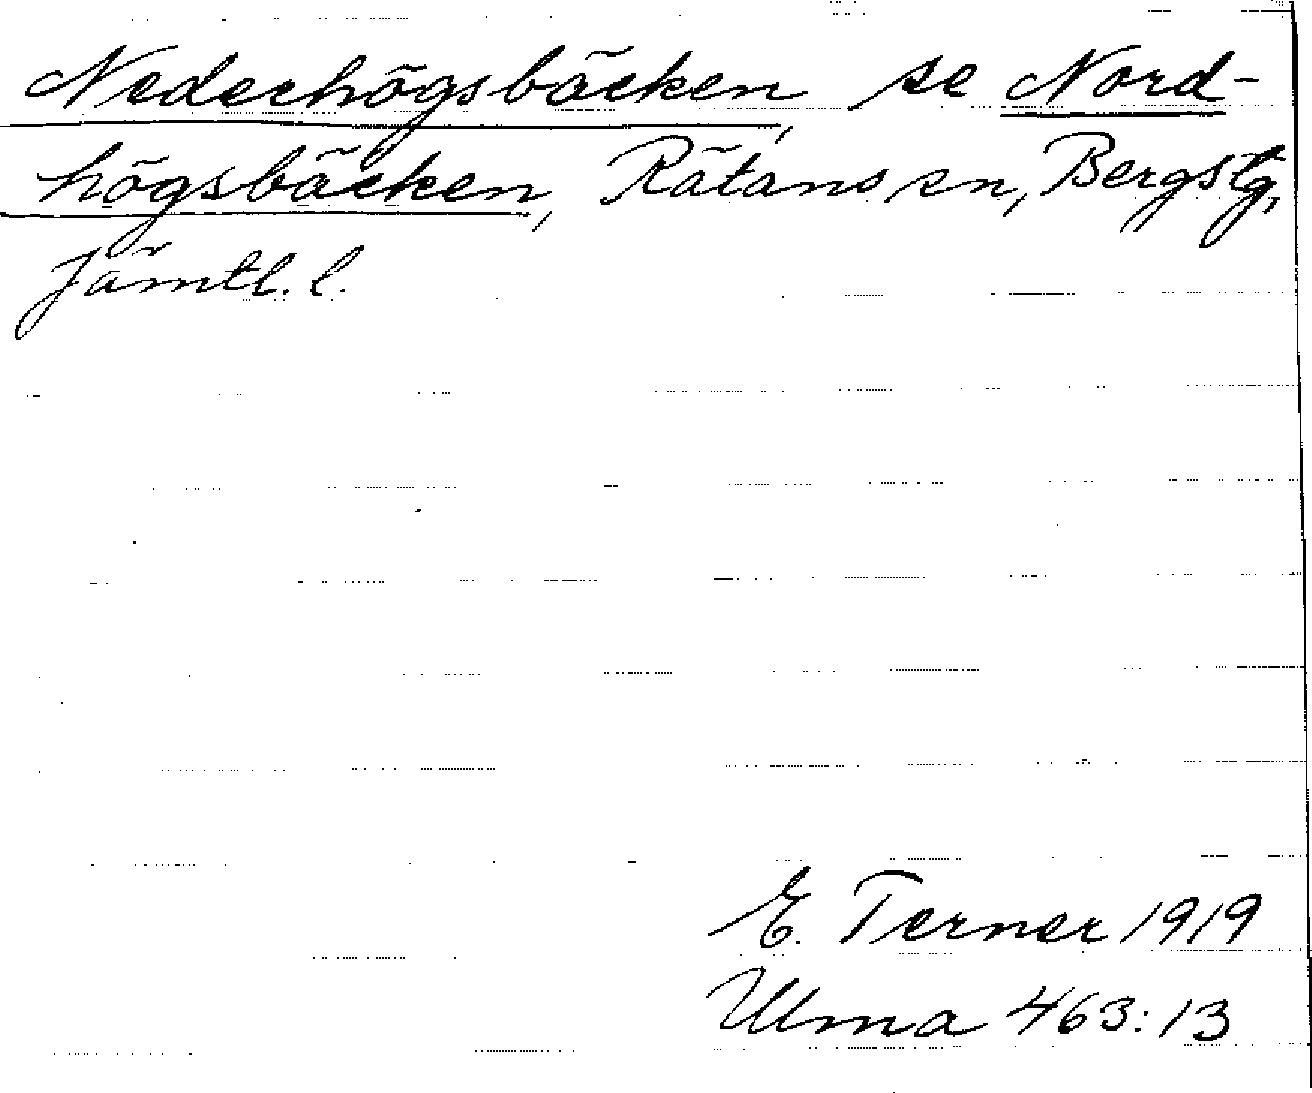 Nederhögsbäcken, se Nord-
högsbäcken, Rätans sn, Bergs tg,
Jämtl. l.
E. Terner 1919
Ulma 463:13